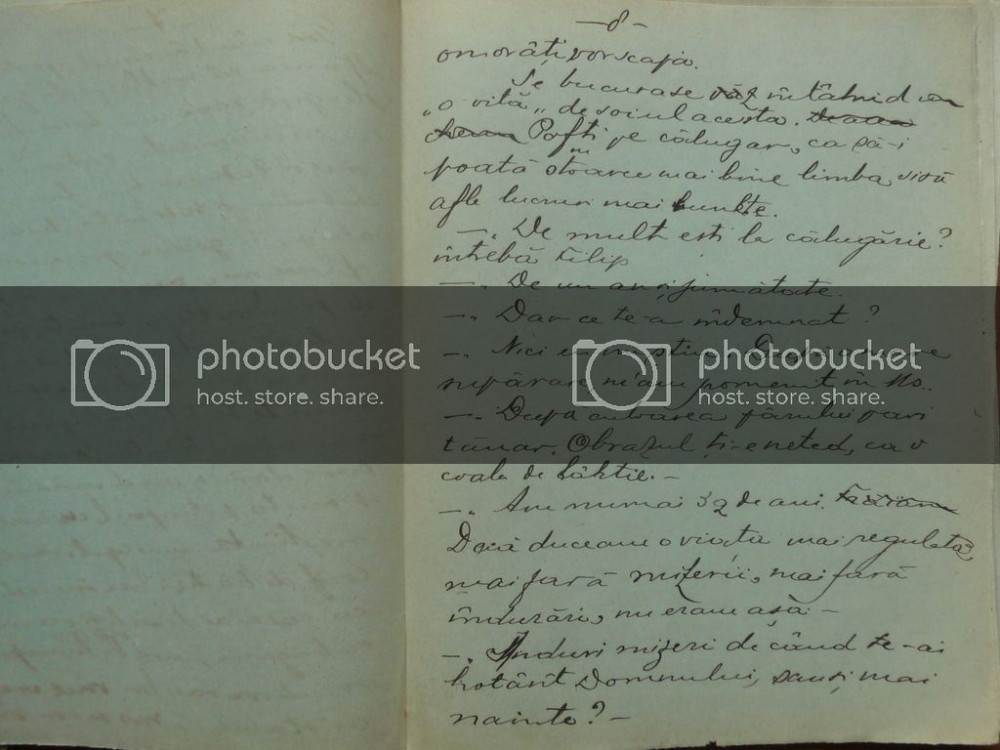 —8—
omorâți, vor scapa.
Se bucurase văz întâlnid un
„o vită„ de soiul acesta.
Pofti pe călugar, ca să-i
poată stoarce mai bine limba, si să
afle lucruri mai multe.
—. De mult esti la călugărie?
întrebă Filip
—. De un an și jumătate.
—. Dar ce te-a îndemnat?
—. Nici eu nu stiu. După
supărare m'am pomenit în
—. Dupa culoarea părului pari
tânar. Obrazul ți-e neted, ca o
coala de hâhtie. —
—. Am numai 32 de ani.
Dacă duceam o viața mai regulată,
mai fară mizerii, mai fară
îndurări, nu eram asà —
—. Induri mizeri de când te-ai
hotărît Domnului, sau și mai
nainte? —
photobucket
host. store. share.
photobucket
host. store. share.